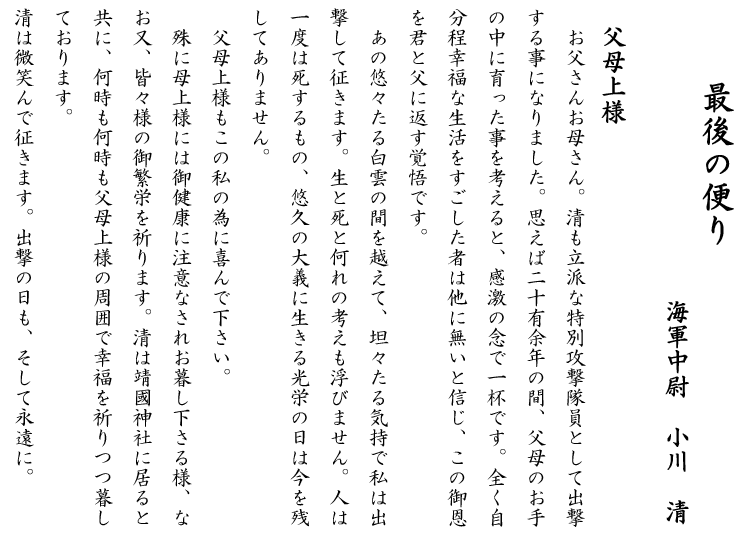 最後の便り
海軍中尉　小川　清
父母上様
　お父さんお母さん。清も立派な特別攻撃隊員として出撃
する事になりました。思えば二十有余年の間、父母のお手
の中に育った事を考えると、感激の念で一杯です。全く自
分程幸福な生活をすごした者は他に無いと信じ、この御恩
を君と父に返す覚悟です。
　あの悠々たる白雲の間を越えて、坦々たる気持で私は出
撃して征きます。生と死と何れの考えも浮びません。人は
一度は死するもの、悠久の大義に生きる光栄の日は今を残
してありません。
　父母上様もこの私の為に喜んで下さい。
　殊に母上様には御健康に注意なされお暮し下さる様、な
お又、皆々様の御繁栄を祈ります。清は靖國神社に居ると
共に、何時も何時も父母上様の周囲で幸福を祈りつつ暮し
ております。
清は微笑んで征きます。出撃の日も、そして永遠に。